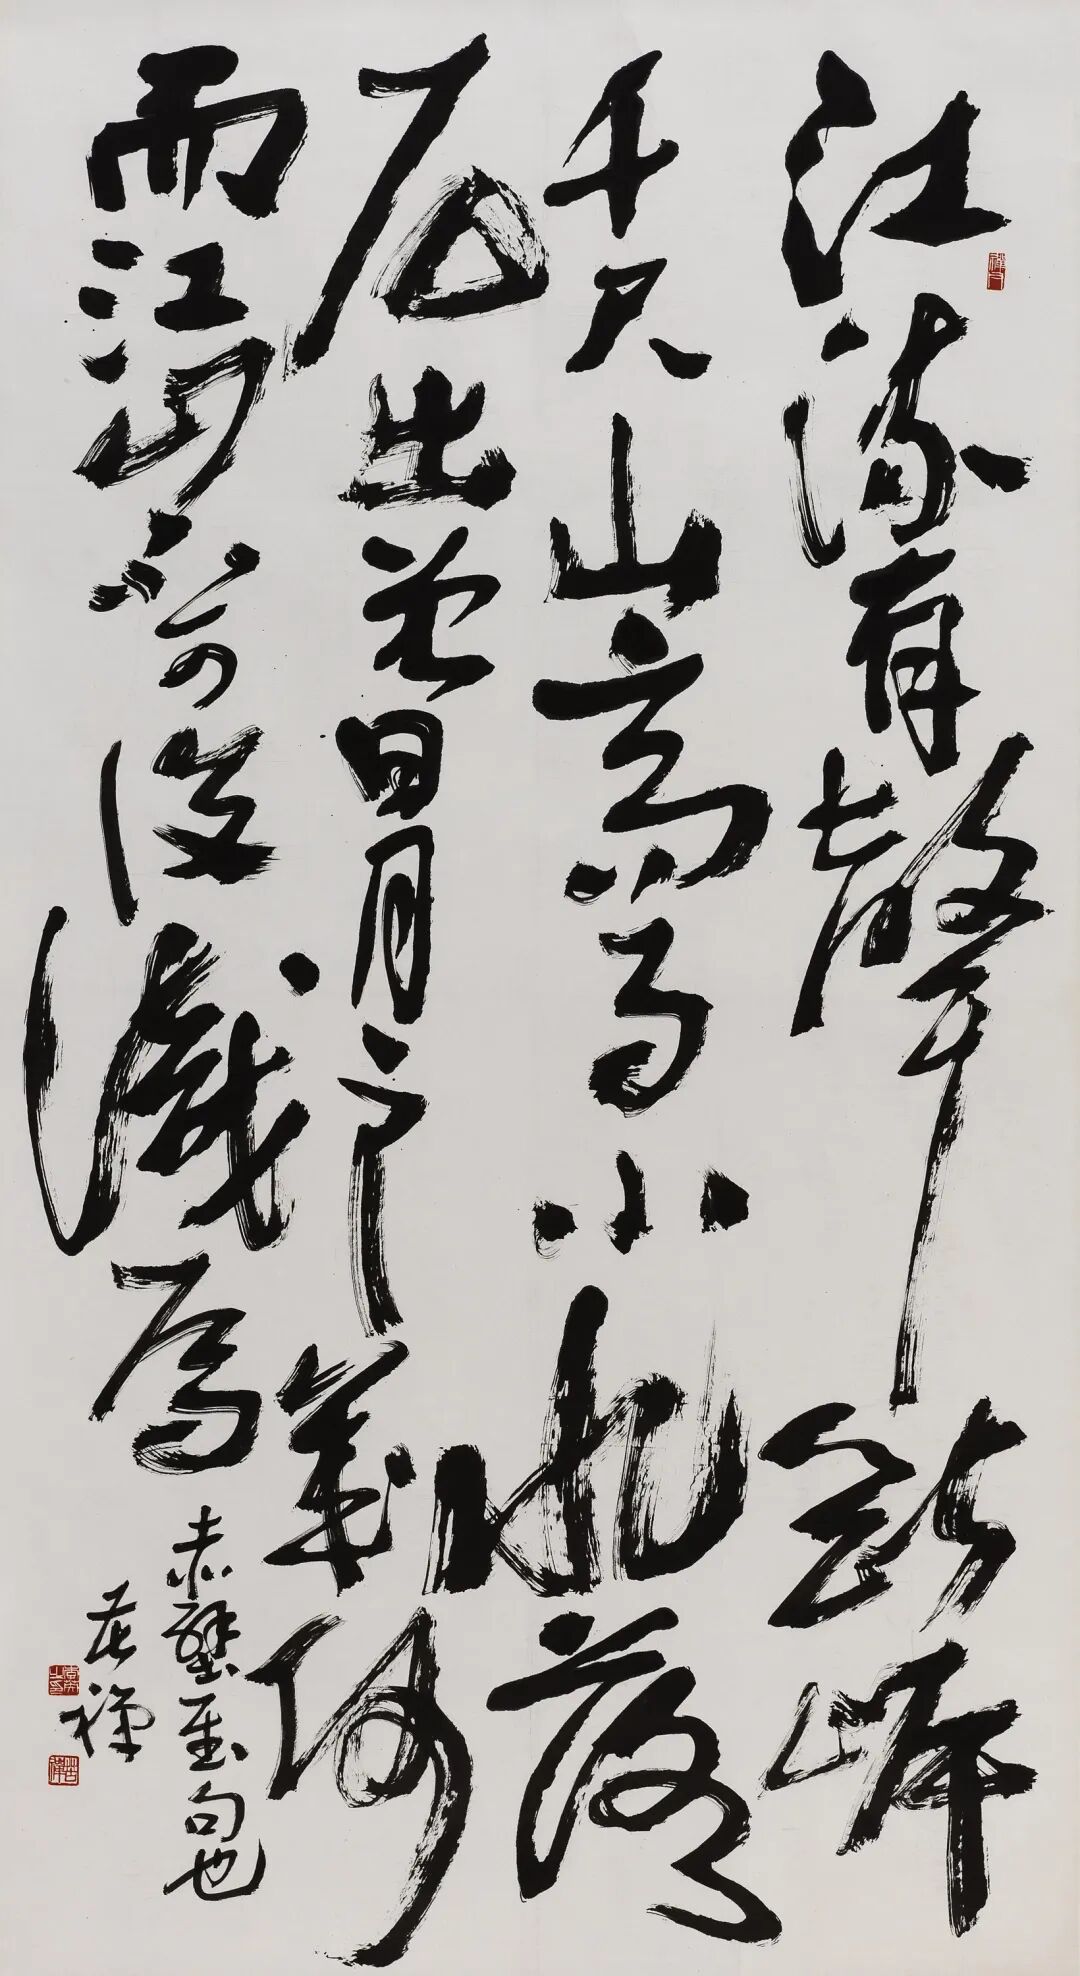 江流有聲斷岸
千尺山高月小水落
石出曾日月之幾何
而江山不可復識
赤壁句也
苦禪